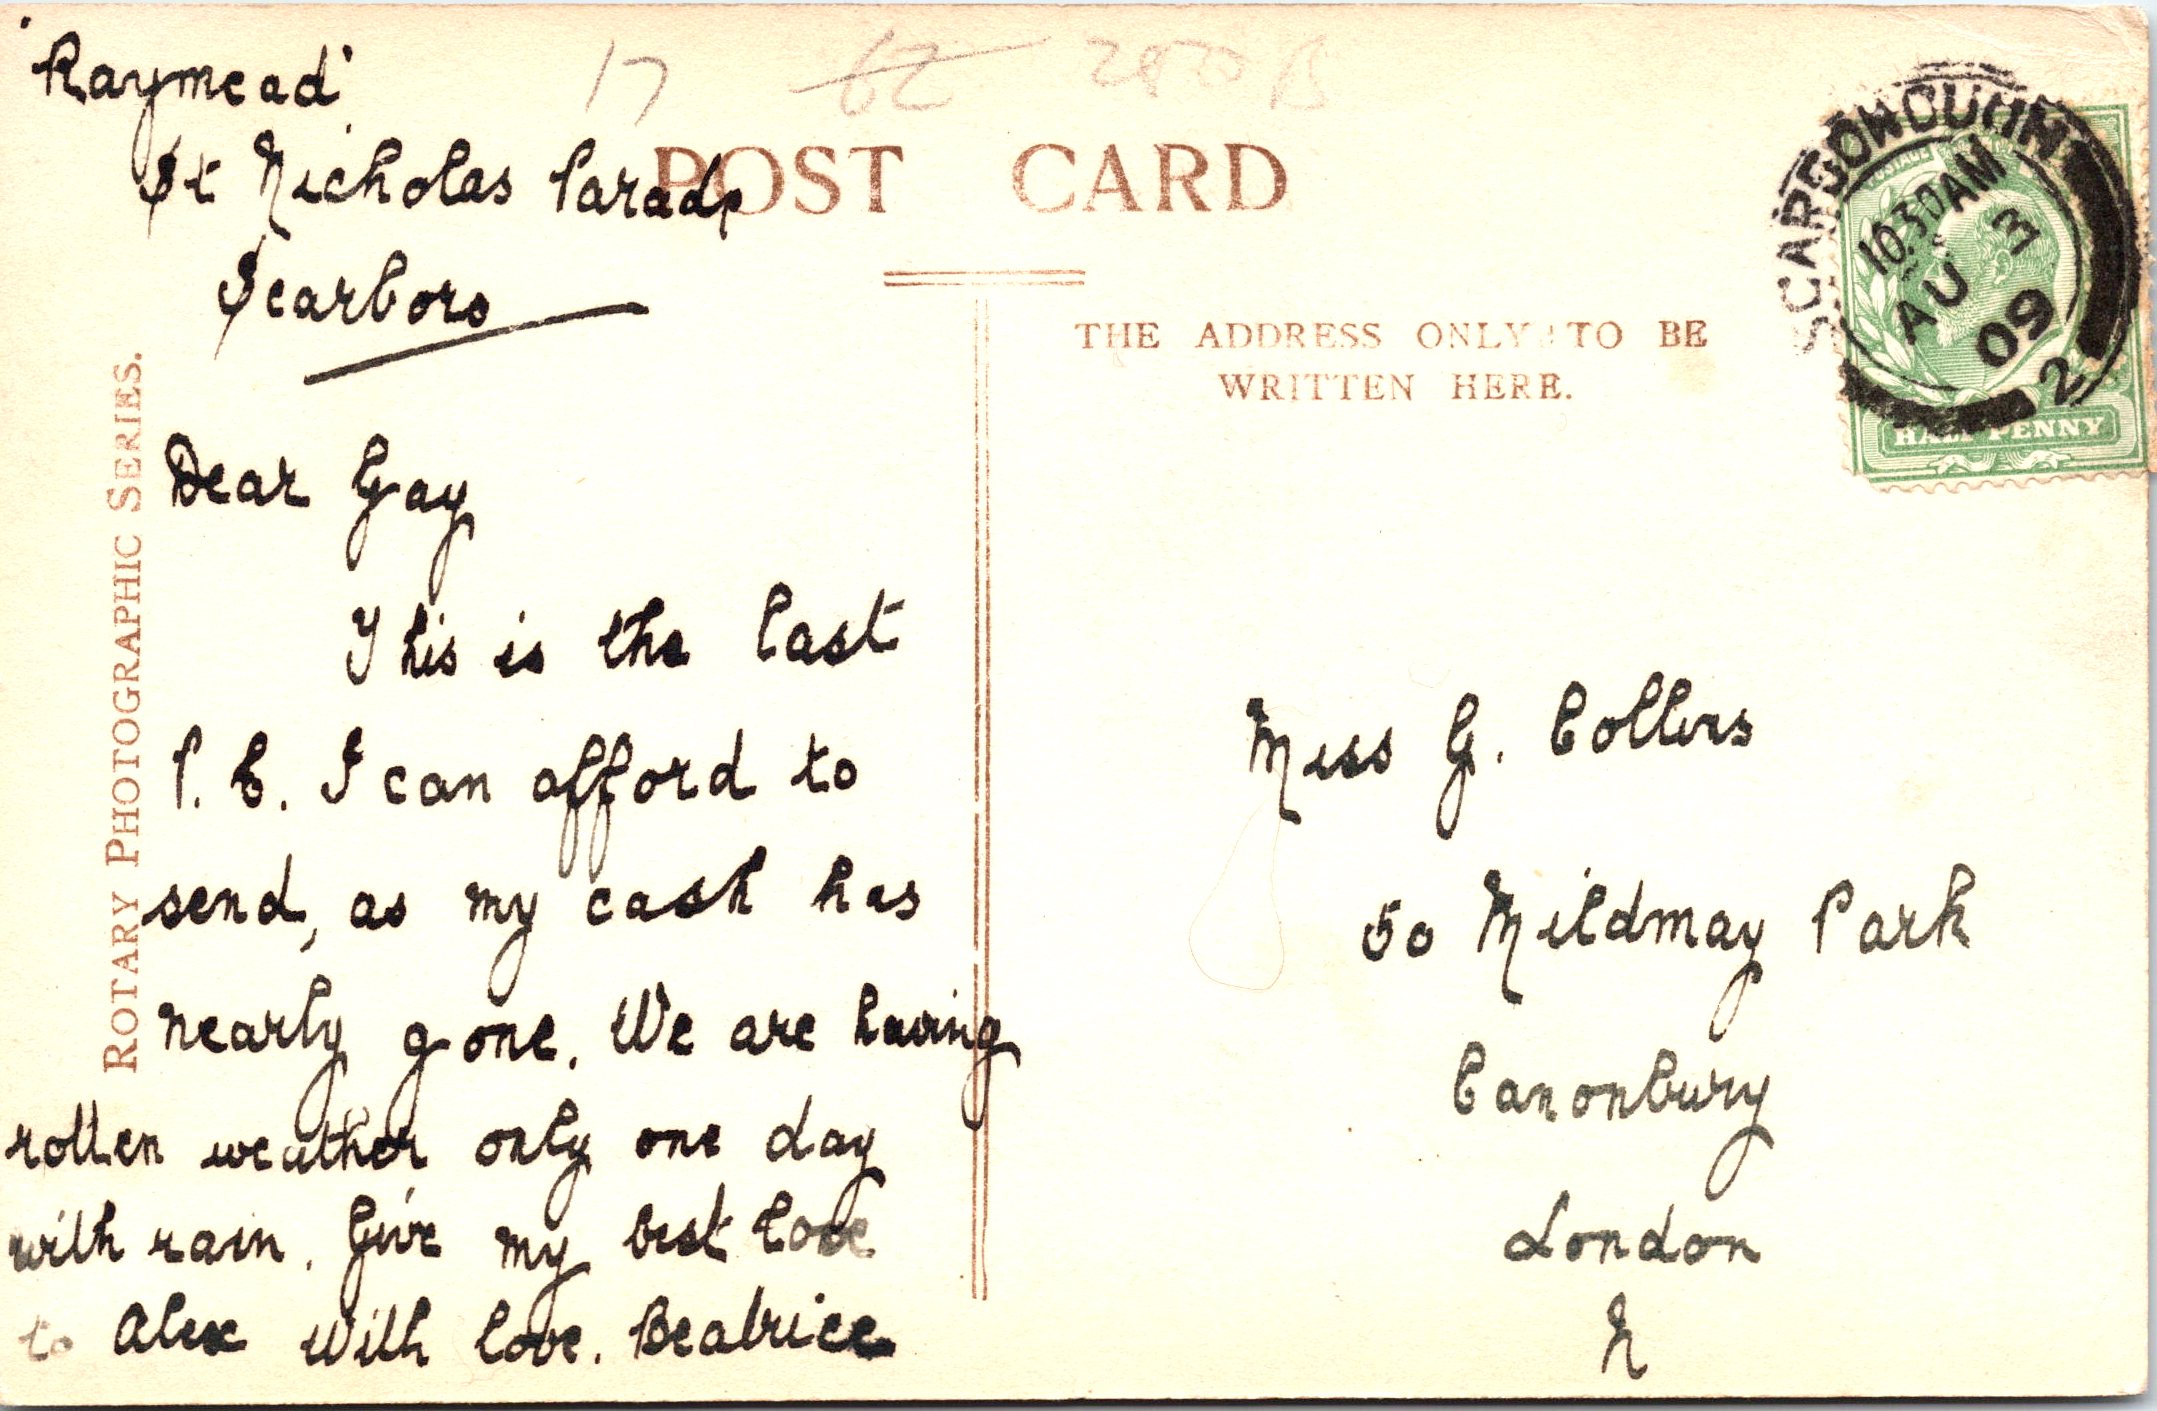 'Raymead'
St Nicholas Parade
Scarboro
17 62 280 B
POST CARD
THE ADDRESS ONLY TO BE
WRITTEN HERE.
SCARBOROUGH
10.30AM
AU 3
09
2
HALF PENNY
ROTARY PHOTOGRAPHIC SERIES.
Dear Gay
This is the last
P.C. I can afford to
send, as my cash has
nearly gone. We are having
rotten weather only one day
with rain. Give my best love
to Alex with love. Beatrice
Miss G. Collins
50 Mildmay Park
Canonbury
London
N